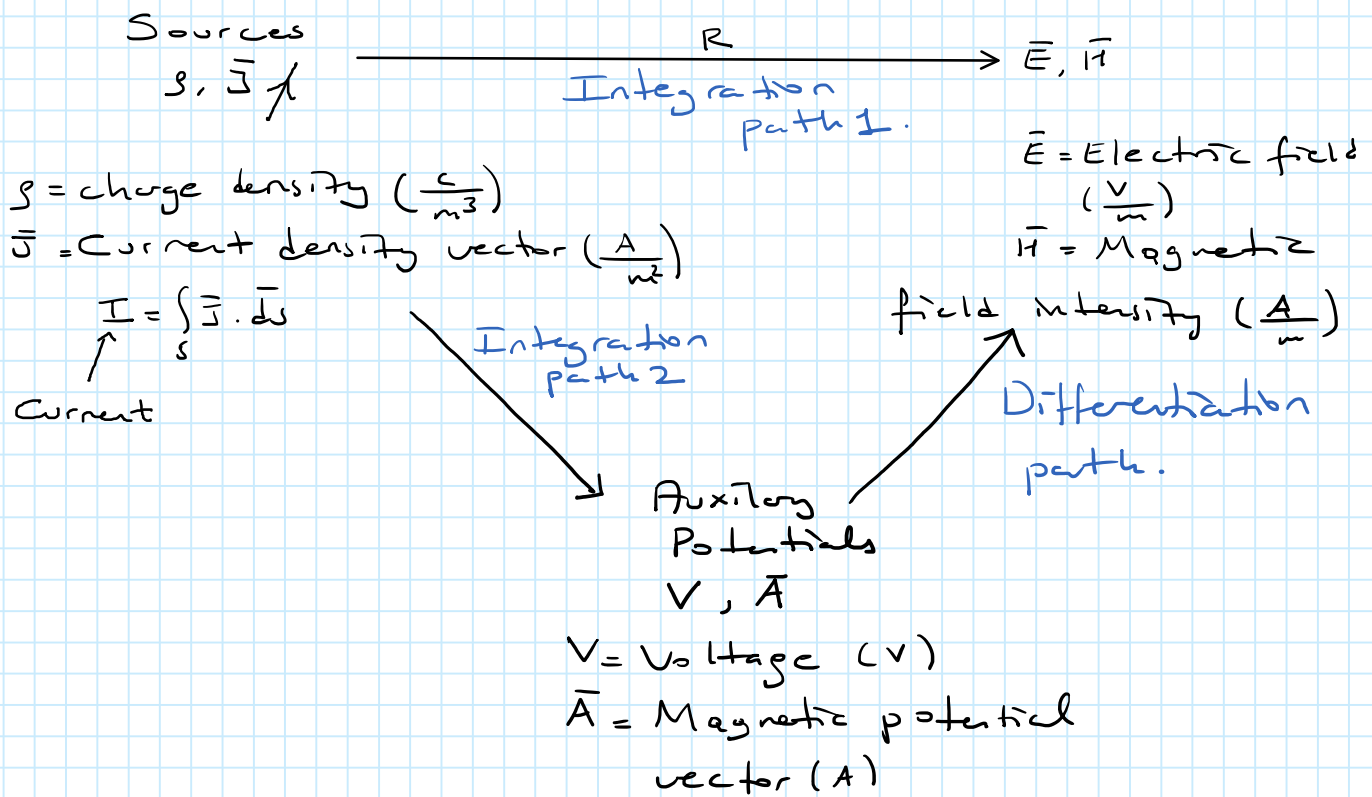 Sources
ρ, J̄
R
Ē, H̄
Integration
path 1.
ρ = charge density (C/m³)
J̄ = Current density vector (A/m²)
I = ∫ₛ J̄ . d̄s
Current
Ē = Electric field
(V/m)
H̄ = Magnetic
field intensity (A/m)
Integration
path 2
Differentiation
path.
Auxilary
Potentials
V, Ā
V = Voltage (V)
Ā = Magnetic potential
vector (A)